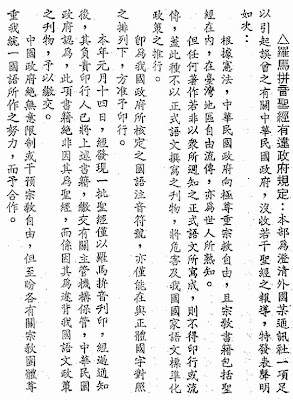 △羅馬拼音聖經有違政府規定：本部為澄清外國某通訊社一項足
以引起誤會之有關中華民國政府，沒收若干聖經之報導，特發表聲明
如次：
根據憲法，中華民國政府向極尊重宗教自由，且宗教書籍包括聖
經在內，在臺灣地區自由流傳，亦為世人所熟知。
但任何著作若非以眾所週知之正式語文所寫成，則不得印行或流
傳，蓋此種不以正式語文撰寫之刊物，將危害及我國國家語文標準化
政策之推行。
卽為我國政府所核定之國語注音符號，亦僅能在與正體國字對照
之排列下，方准予印行。
本年元月十四日，經發現一批聖經僅以羅馬拼音刊印，經過通知
後，其負責印行人已將上述書籍，繳交有關主管機構保管，中華民國
政府認為，此項書籍絕非因其為聖經，而係因其為違背我國語文政策
之刊物，予以繳交。
中國政府絕無意限制或干預宗教自由，但至盼各有關宗教團體尊
重我統一國語所作之努力，而予合作。